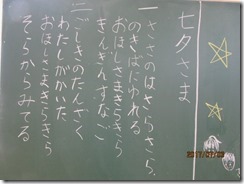 七夕さま
一 ささのはさらさら
のきばにゆれる
おほしさまきらきら
きんぎんすなご
二 ごしきのたんざく
わたしがかいた
おほしさまきらきら
そらからみてる